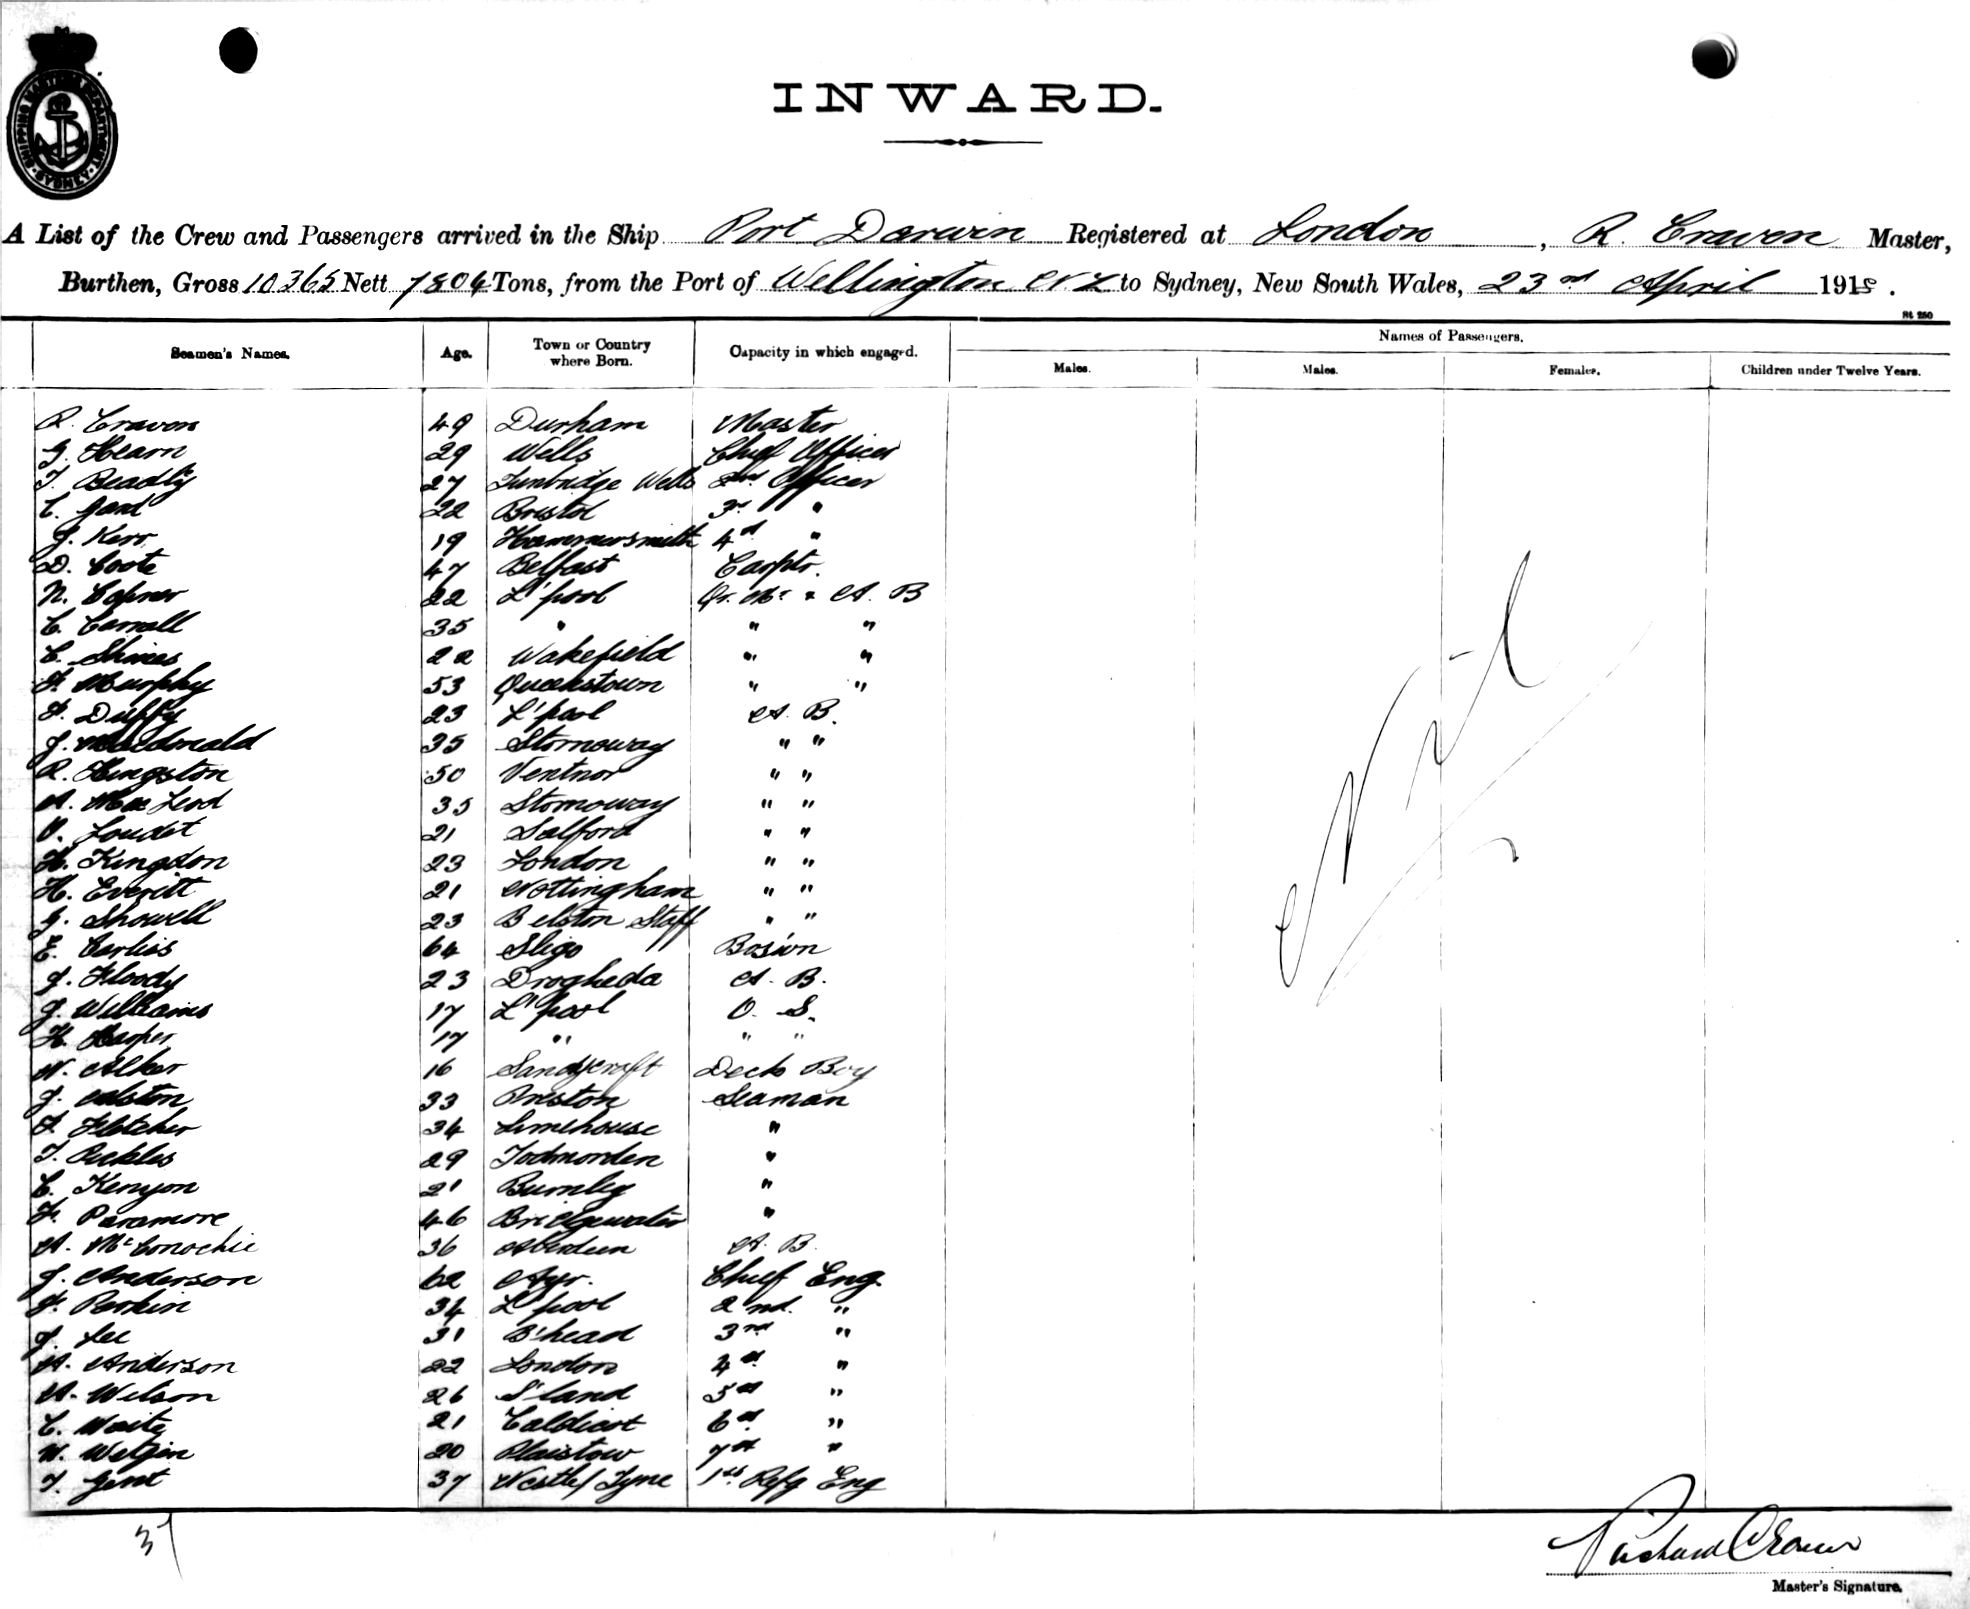 SHIPPING MASTER'S DEPARTMENT
SYDNEY
INWARD.
A List of the Crew and Passengers arrived in the Ship Port Darwin Registered at London, R. Craven Master,
Burthen, Gross 10365 Nett Tons, from the Port of Wellington NZ to Sydney, New South Wales, 23rd April 191
St 250
Seamen's Names. Age. Town or Country where Born. Capacity in which engaged. Names of Passengers.
Males. Males. Females. Children under Twelve Years.
R. Craven 49 Durham Master
G. Hearn 29 Wells Chief Officer
T. Beadly 27 Tunbridge Wells 2nd Officer
C. Gard 22 Bristol 3rd "
J. Kerr 19 Hammersmith 4th "
D. Coote 47 Belfast Carptr.
N. 22 L'pool Qr. Mr & A. B
C. Carroll 35 " " "
C. Shires 22 Wakefield " "
F. Murphy 53 Queenstown " "
F. Duffy 23 L'pool A. B.
J. Macdonald 35 Stornoway " "
R. Kingston 50 Ventnor " "
A. MacLeod 35 Stornoway " "
V. Loudet 21 Salford " "
H. Kingdon 23 London " "
H. Everitt 21 Nottingham " "
G. Showell 23 Belston Staff " "
E. Corliss 64 Sligo Bos'wn
J. Floody 23 Drogheda A. B.
J. Williams 17 L'pool O. S.
H. Harper 17 " " "
W. Alker 16 Sandycroft Deck Boy
J. Alston 33 Preston Seaman
F. Fletcher 34 Limehouse "
T. Pickles 29 Todmorden "
C. Kenyon 21 Burnley "
F. Paramore 46 Bridgewater "
A. McConochie 36 Aberdeen A. B.
J. Anderson 62 Ayr. Chief Eng.
F. Parkin 34 L'pool 2nd. "
J. Lee 31 B'head 3rd "
A. Anderson 22 London 4th "
A. Wilson 26 S'land 5th "
C. Waite 21 Caldicot 6th "
W. 20 Plaistow 7th "
T. Gent 37 Nestle/Tyne 1st Refg Eng
Nil
37
Richard Craven
Master's Signature.